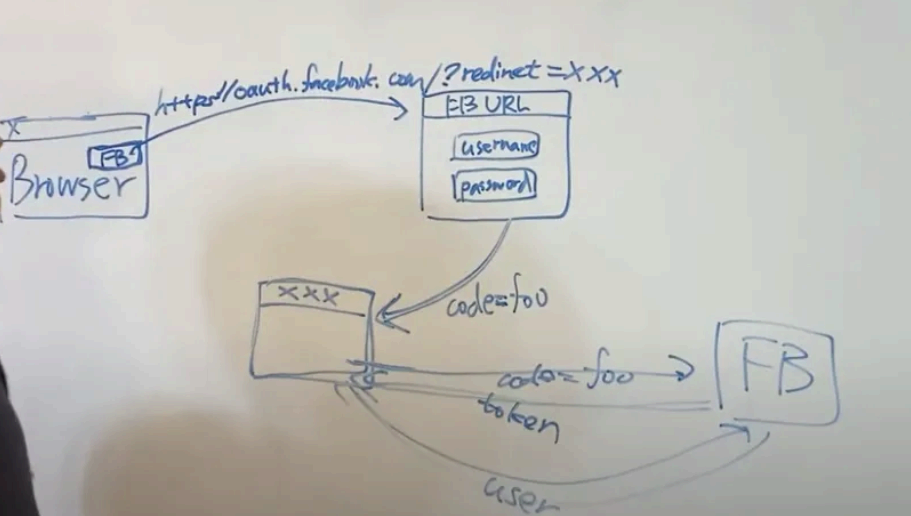 https://oauth.facebook.com/?redirect=xxx
X
FB
Browser
FB URL
username
password
code=foo
xxx
code=foo
token
FB
user